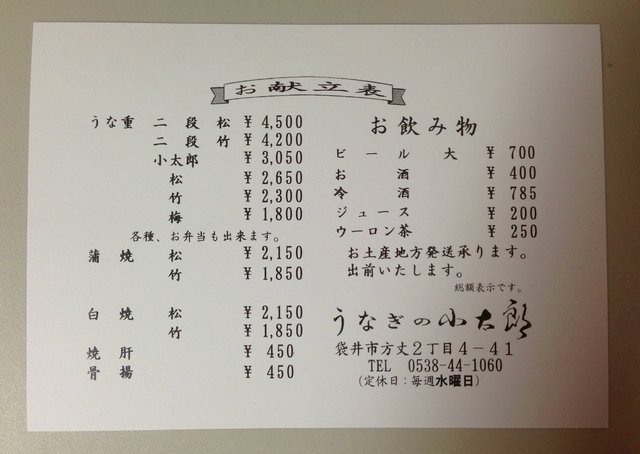 お献立表
うな重 二段 松 ¥4,500
二段 竹 ¥4,200
小太郎 ¥3,050
松 ¥2,650
竹 ¥2,300
梅 ¥1,800
各種、お弁当も出来ます。
蒲焼 松 ¥2,150
竹 ¥1,850
白焼 松 ¥2,150
竹 ¥1,850
焼肝 ¥450
骨揚 ¥450
お飲み物
ビール 大 ¥700
お酒 ¥400
冷酒 ¥785
ジュース ¥200
ウーロン茶 ¥250
お土産地方発送承ります。
出前いたします。
総額表示です。
うなぎの小太郎
袋井市方丈2丁目4-41
TEL 0538-44-1060
(定休日:毎週水曜日)